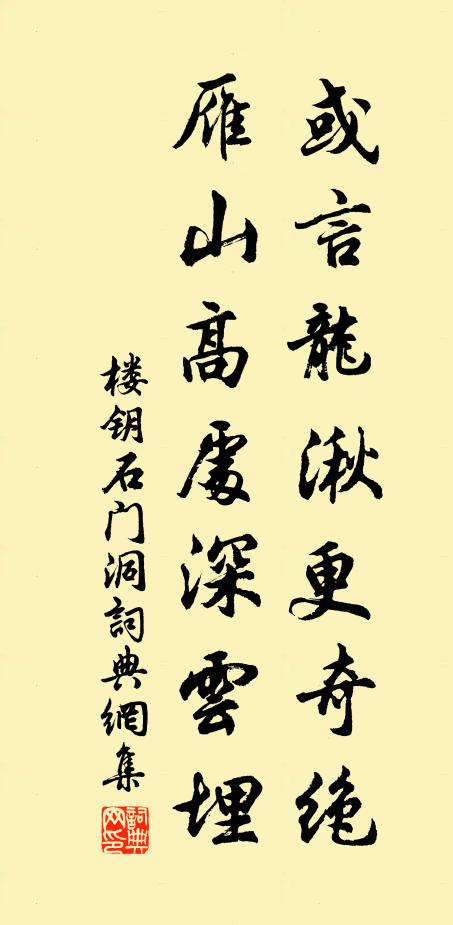 或言龍湫更奇绝
雁山高處深雲埋
楼钥石门洞詞典網集
詞典
网印